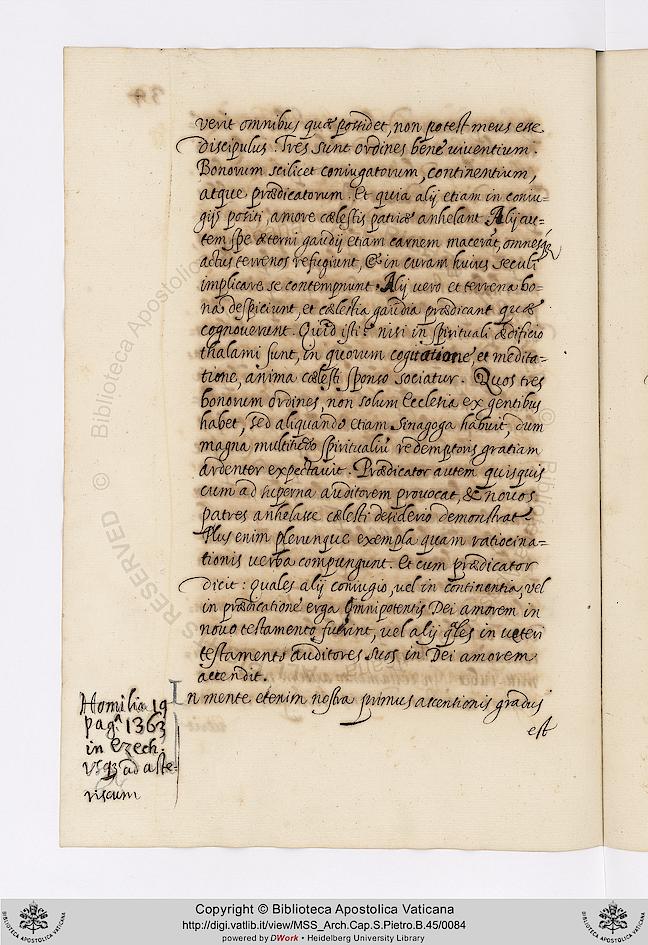 verit omnibus quæ possidet, non potest meus esse
discipulus. Tres sunt ordines bene viventium.
Bonorum scilicet coniugatorum, continentium,
atque prædicatorum. Et quia alij etiam in coniu=
gijs positi, amore cælestis patriæ anhelant. Alij au=
tem spe æterni gaudij etiam carnem macerāt, omnesq
actus terrenos refugiunt, & in curam huius seculi
implicare se contempnunt. Alij vero et terrena bo=
na despiciunt, et cælestia gaudia prædicant quæ
cognoverunt. Quid isti nisi in spirituali ædificio
thalami sunt, in quorum cogitatione, et medita=
tione, anima cælesti sponso sociatur. Quos tres
bonorum ordines, non solum Ecclesia ex gentibus
habet, sed aliquando etiam Sinagoga habuit, dum
magna multitudo spiritualiū redemptoris gratiam
ardenter expectavit. Prædicator autem quisquis
cum ad superna auditorem provocat, & novos
patres anhelasse cælesti desiderio demonstrat.
Plus enim plerunque exempla quam ratiocina=
tionis verba compungunt. Et cum prædicator
dicit: quales alij coniugio, vel in continentia, vel
in prædicatione erga Omnipotentis Dei amorem in
novo testamento fuerint, vel alij q̄les in veteri
testamento auditores suos in Dei amorem
accendit.
In mente etenim nostra primus ascentionis gradus
est
Homilia 19
pag.ª 1363
in Ezech.
vsq; ad aste=
riscum
39
Biblioteca Apostolica
©
RESERVED
Copyright © Biblioteca Apostolica Vaticana
http://digi.vatlib.it/view/MSS_Arch.Cap.S.Pietro.B.45/0084
powered by DWork • Heidelberg University Library